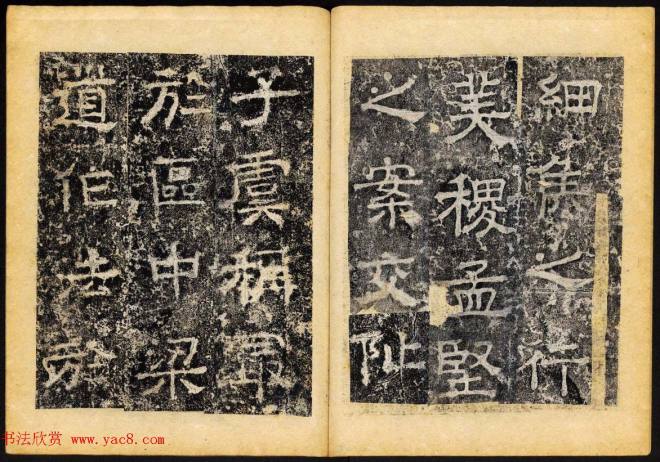 細侯之行
美稷孟堅
之案交阯
子虞稱最
於區中梁
道作法於
书法欣赏 www.yac8.com